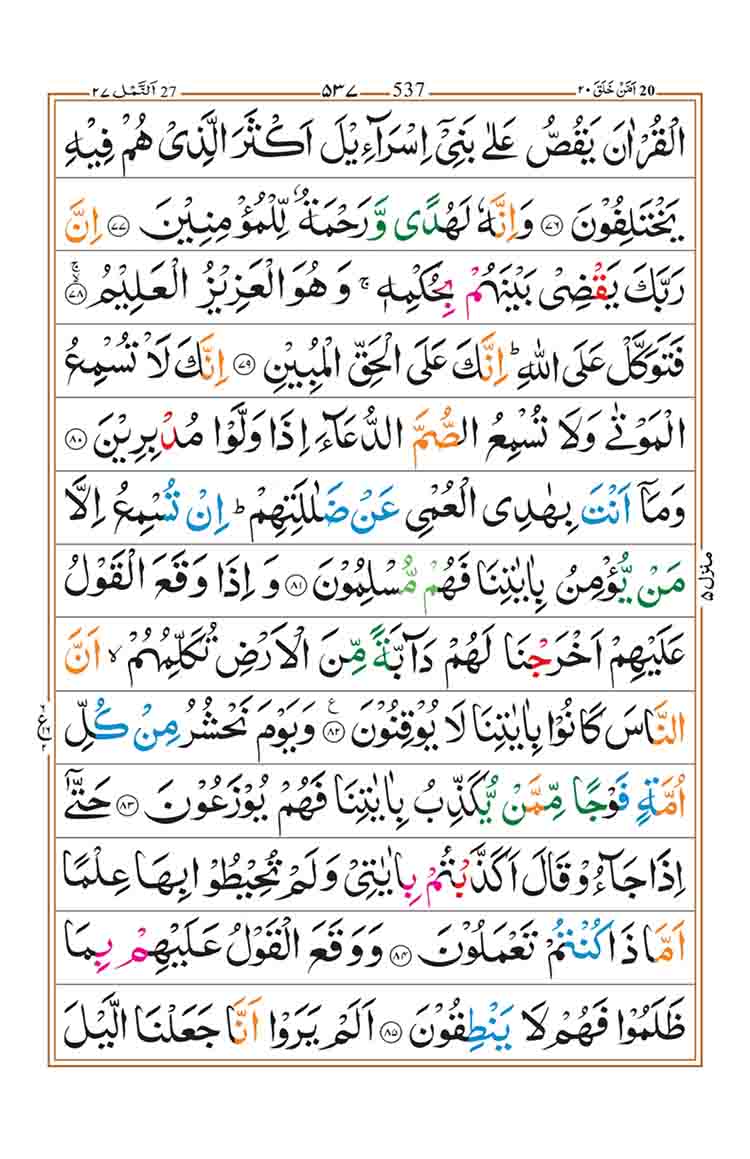 اَمَّنْ خَلَقَ ٢٠ 20 ٥٣٧ 537 اَلنَّمْل ٢٧ 27
الْقُرْاٰنَ يَقُصُّ عَلٰى بَنِىْٓ اِسْرَآءِيْلَ اَكْثَرَ الَّذِىْ هُمْ فِيْهِ
يَخْتَلِفُوْنَ ﴿٧٦﴾ وَاِنَّهٗ لَهُدًى وَّرَحْمَةٌ لِّلْمُؤْمِنِيْنَ ﴿٧٧﴾ اِنَّ
رَبَّكَ يَقْضِىْ بَيْنَهُمْ بِحُكْمِهٖ ۚ وَهُوَ الْعَزِيْزُ الْعَلِيْمُ ﴿٧٨﴾ ۙۚ
فَتَوَكَّلْ عَلَى اللّٰهِ ؕ اِنَّكَ عَلَى الْحَقِّ الْمُبِيْنِ ﴿٧٩﴾ اِنَّكَ لَا تُسْمِعُ
الْمَوْتٰى وَلَا تُسْمِعُ الصُّمَّ الدُّعَآءَ اِذَا وَلَّوْا مُدْبِرِيْنَ ﴿٨٠﴾
وَمَآ اَنْتَ بِهٰدِى الْعُمْىِ عَنْ ضَلٰلَتِهِمْ ؕ اِنْ تُسْمِعُ اِلَّا
مَنْ يُّؤْمِنُ بِاٰيٰتِنَا فَهُمْ مُّسْلِمُوْنَ ﴿٨١﴾ وَ اِذَا وَقَعَ الْقَوْلُ
عَلَيْهِمْ اَخْرَجْنَا لَهُمْ دَآبَّةً مِّنَ الْاَرْضِ تُكَلِّمُهُمْ ۙ اَنَّ
النَّاسَ كَانُوْا بِاٰيٰتِنَا لَا يُوْقِنُوْنَ ﴿٨٢﴾ ع وَيَوْمَ نَحْشُرُ مِنْ كُلِّ
اُمَّةٍ فَوْجًا مِّمَّنْ يُّكَذِّبُ بِاٰيٰتِنَا فَهُمْ يُوْزَعُوْنَ ﴿٨٣﴾ حَتّٰٓى
اِذَا جَآءُوْ قَالَ اَكَذَّبْتُمْ بِاٰيٰتِىْ وَلَمْ تُحِيْطُوْا بِهَا عِلْمًا
اَمَّاذَا كُنْتُمْ تَعْمَلُوْنَ ﴿٨٤﴾ وَوَقَعَ الْقَوْلُ عَلَيْهِمْ بِمَا
ظَلَمُوْا فَهُمْ لَا يَنْطِقُوْنَ ﴿٨٥﴾ اَلَمْ يَرَوْا اَنَّا جَعَلْنَا الَّيْلَ
منزل ٥